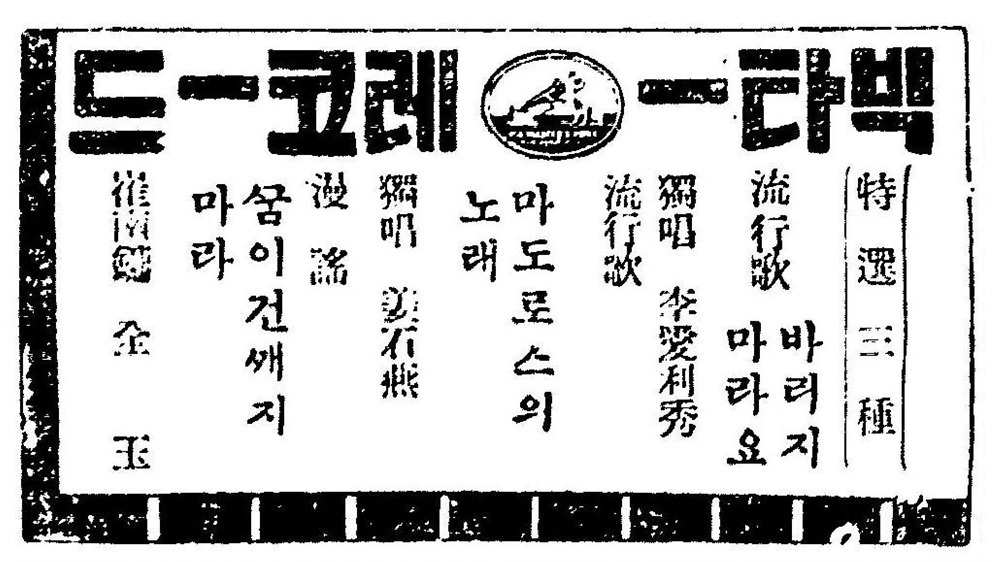 빅타ー레코ー드
特選三種
流行歌 바리지
마라요
獨唱 李愛利秀
流行歌
마도로스의
노래
獨唱 姜石燕
漫謠
ᄭᅮᆷ이건ᄭᅢ지
마라
崔南鏞 全玉